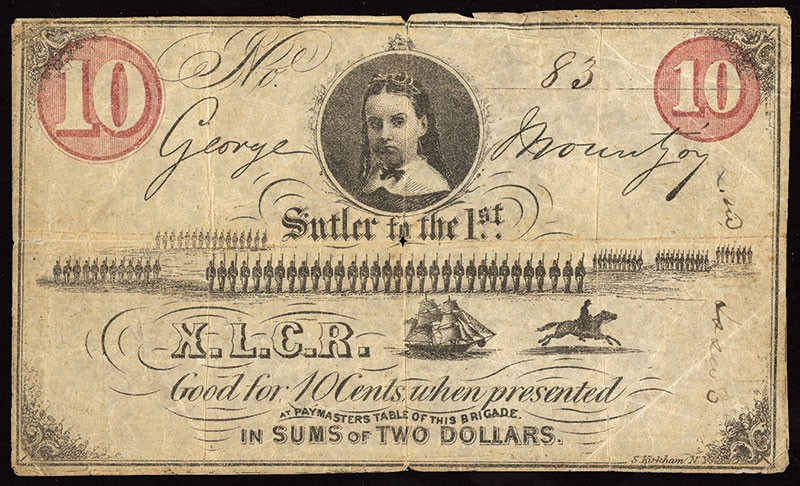 10 No. 83 10
George Mountjoy
Sutler to the 1st.
X.L.C.R.
Good for 10 Cents, when presented
AT PAYMASTERS TABLE OF THIS BRIGADE.
IN SUMS OF TWO DOLLARS.
S. Kirkham N.Y.